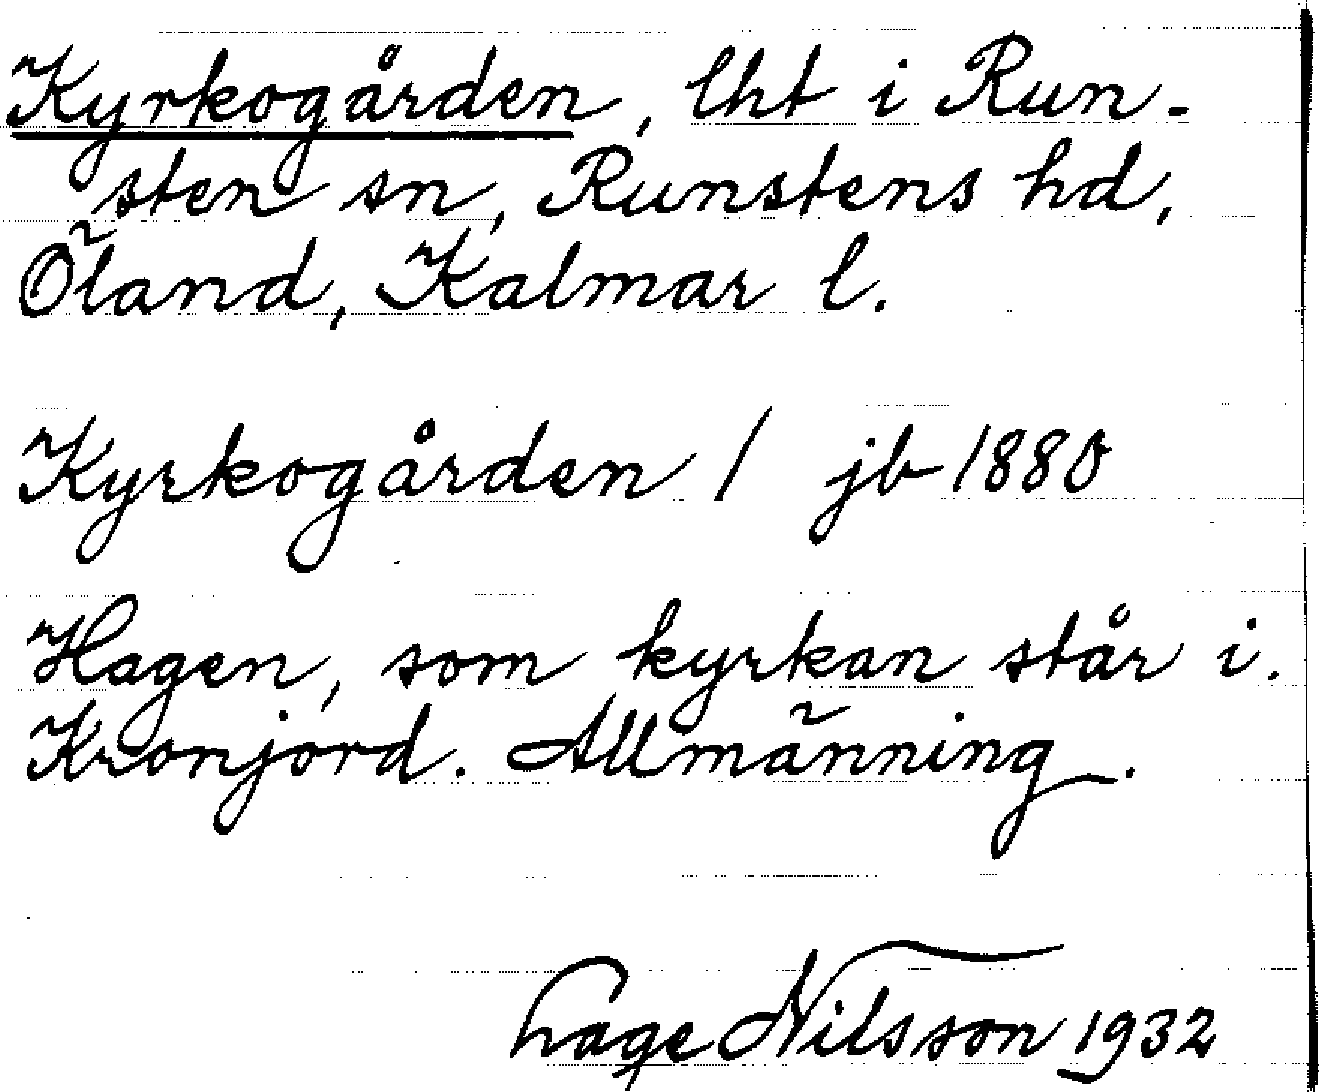 Kyrkogården, lht i Run-
sten sn, Runstens hd,
Öland, Kalmar l.
Kyrkogården / jb 1880
Hagen, som kyrkan står i.
Kronjord. Allmänning.
Hage Nilsson 1932